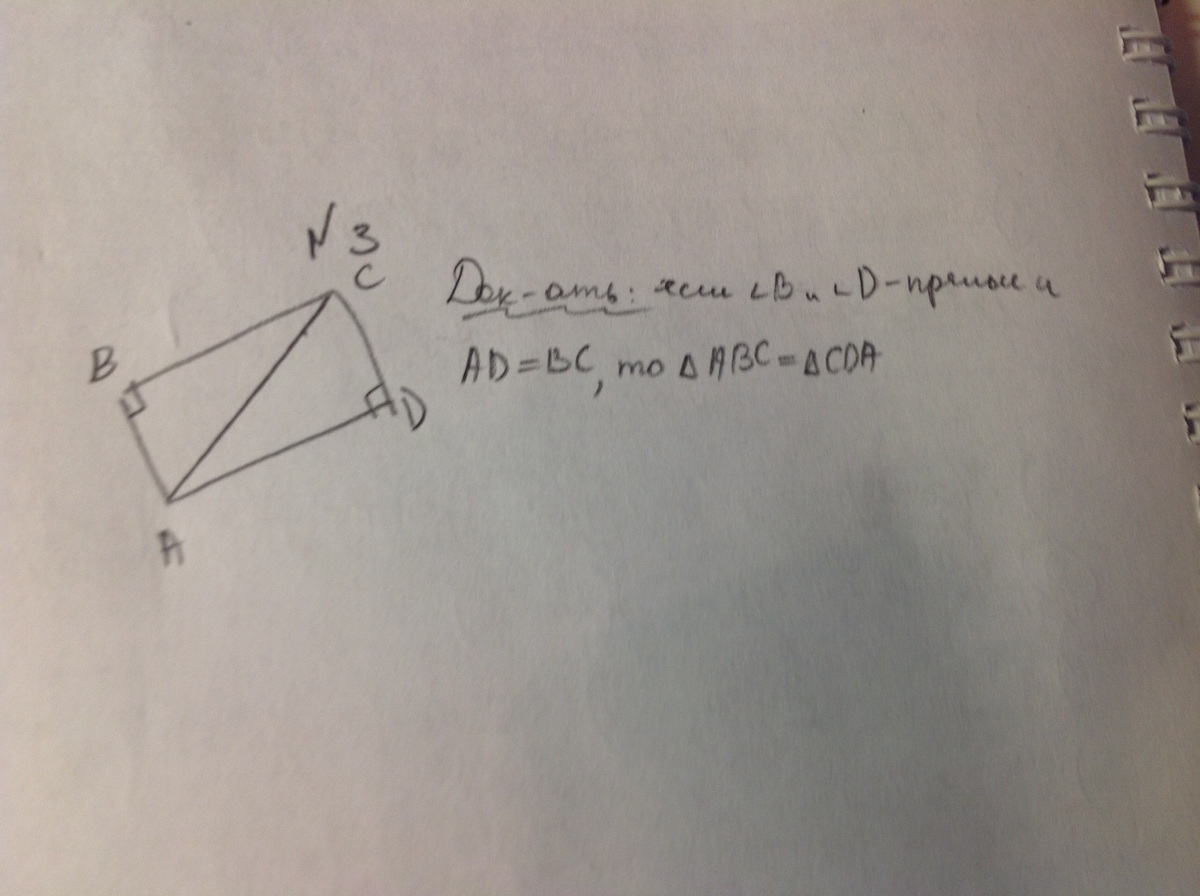 N 3
C
Док-ать: если ∠B и ∠D-прямые и
B
AD=BC, то △ABC=△CDA
D
A